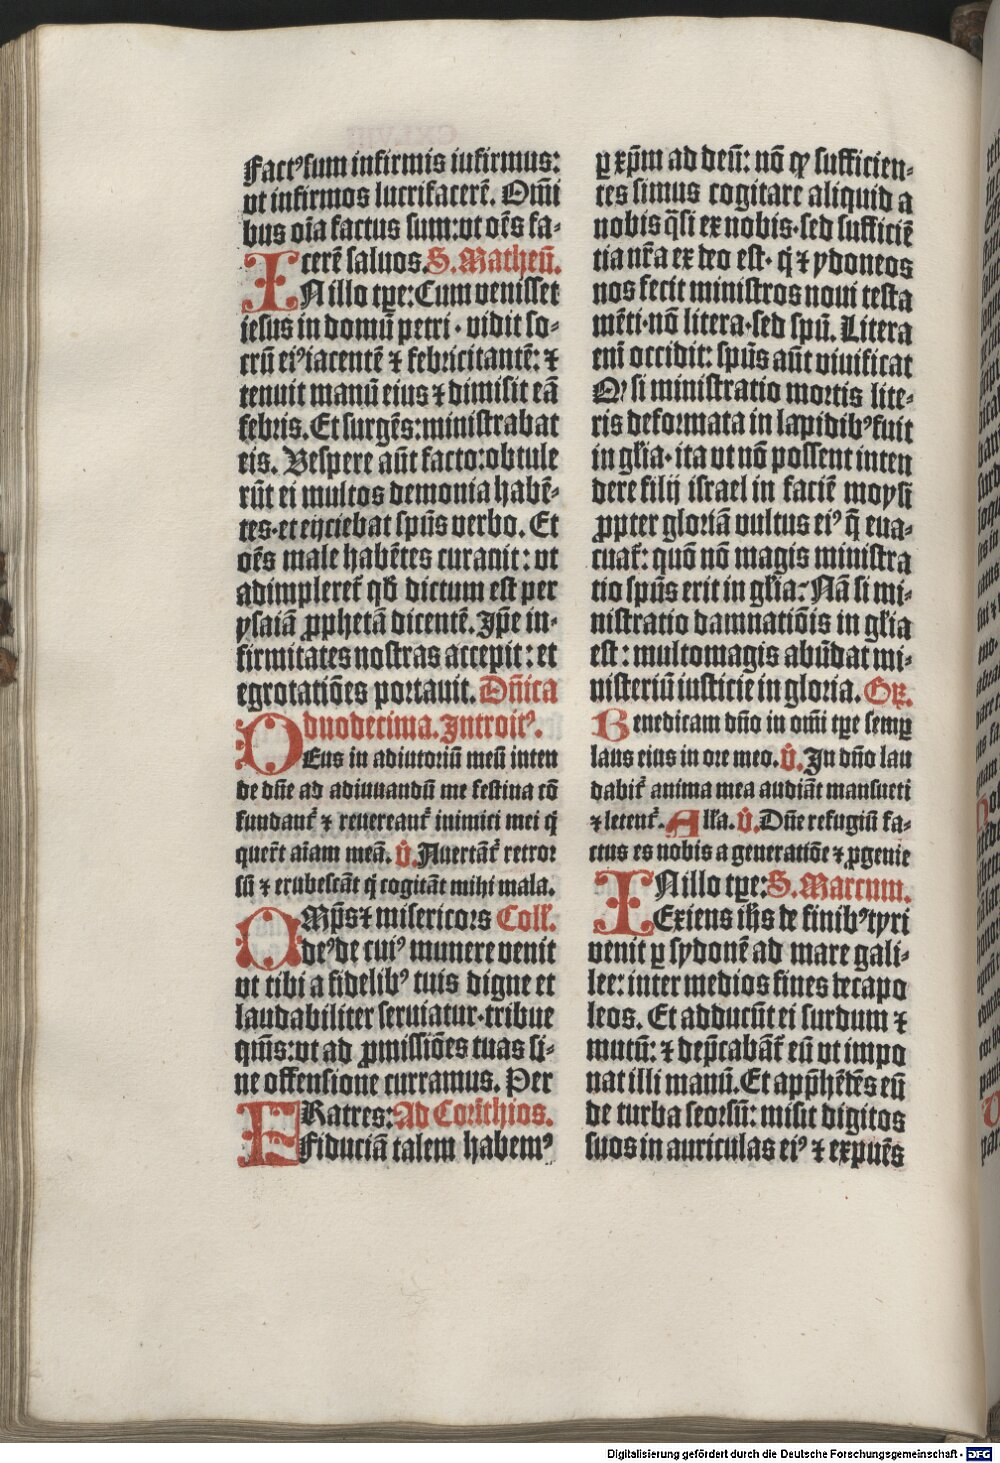 Factꝰ sum infirmis infirmus:
vt infirmos lucrifacerē. Om̄i
bus oīa factus sum:vt oēs fa-
cerē saluos. S. Matheū.
IN illo tꝑe: Cum venisset
iesus in domū petri · vidit so-
crū eiꝰ iacentē ⁊ febricitantē: ⁊
tenuit manū eius ⁊ dimisit eā
febris. Et surgēs: ministrabat
eis. Vespere aūt facto:obtule
rūt ei multos demonia habē-
tes·et eijciebat spūs verbo. Et
oēs male habētes curauit: vt
adimpleret᷑ qd̄ dictum est per
ysaiā ꝓphetā dicentē. Jp̄e in-
firmitates nostras accepit: et
egrotatiōes portauit. Dn̄ica
duodecima. Jntroitꝰ.
DEus in adiutoriū meū inten
de dn̄e ad adiuuandū me festina cō
fundant᷑ ⁊ reuereant᷑ inimici mei q̄
querūt aīam meā. V̊. Auertāt᷑ retror
sū ⁊ erubescāt q̄ cogitāt mihi mala.
OMp̄s ⁊ misericors Coll̄.
deꝰ de cuiꝰ munere venit
vt tibi a fidelibꝰ tuis digne et
laudabiliter seruiatur·tribue
qm̄s:vt ad ꝓmissiōes tuas si-
ne offensione curramus. Per
FRatres: Ad Corīthios.
Fiduciā talem habemꝰ
ꝑ xp̄m ad deū: nō ꝙ sufficien-
tes simus cogitare aliquid a
nobis q̄si ex nobis·sed sufficiē
tia nr̄a ex deo est· q̄ ⁊ ydoneos
nos fecit ministros noui testa
mēti·nō litera·sed spū. Litera
eni̅ occidit: spūs aūt viuificat
Qꝰ si ministratio mortis lite-
ris deformata in lapidibꝰ fuit
in gl̄ia· ita vt nō possent inten
dere filij israel in faciē moysi
ꝓpter gloriā vultus eiꝰ q̄ eua-
cuat᷑: quō nō magis ministra
tio spūs erit in gl̄ia: Nā si mi-
nistratio damnatiōis in gl̄ia
est: multomagis abūdat mi-
nisteriū iusticie in gloria. Gr̄.
Benedicam dn̄o in om̄i tꝑe semꝑ
laus eius in ore meo. V̊. Jn dn̄o lau
dabit᷑ anima mea audiāt mansueti
⁊ letent᷑. All̄a. V̊. Dn̄e refugiū fa-
ctus es nobis a generatiōe ⁊ ꝓgenie
IN illo tꝑe: S. Marcum.
Exiens ih̄s de finibꝰ tyri
venit ꝑ sydonē ad mare gali-
lee: inter medios fines decapo
leos. Et adducūt ei surdum ⁊
mutū: ⁊ dep̄cabāt᷑ eū vt impo
nat illi manū. Et app̄hēdēs eū
de turba seorsū: misit digitos
suos in auriculas eiꝰ ⁊ expuēs
Digitalisierung gefördert durch die Deutsche Forschungsgemeinschaft - DFG